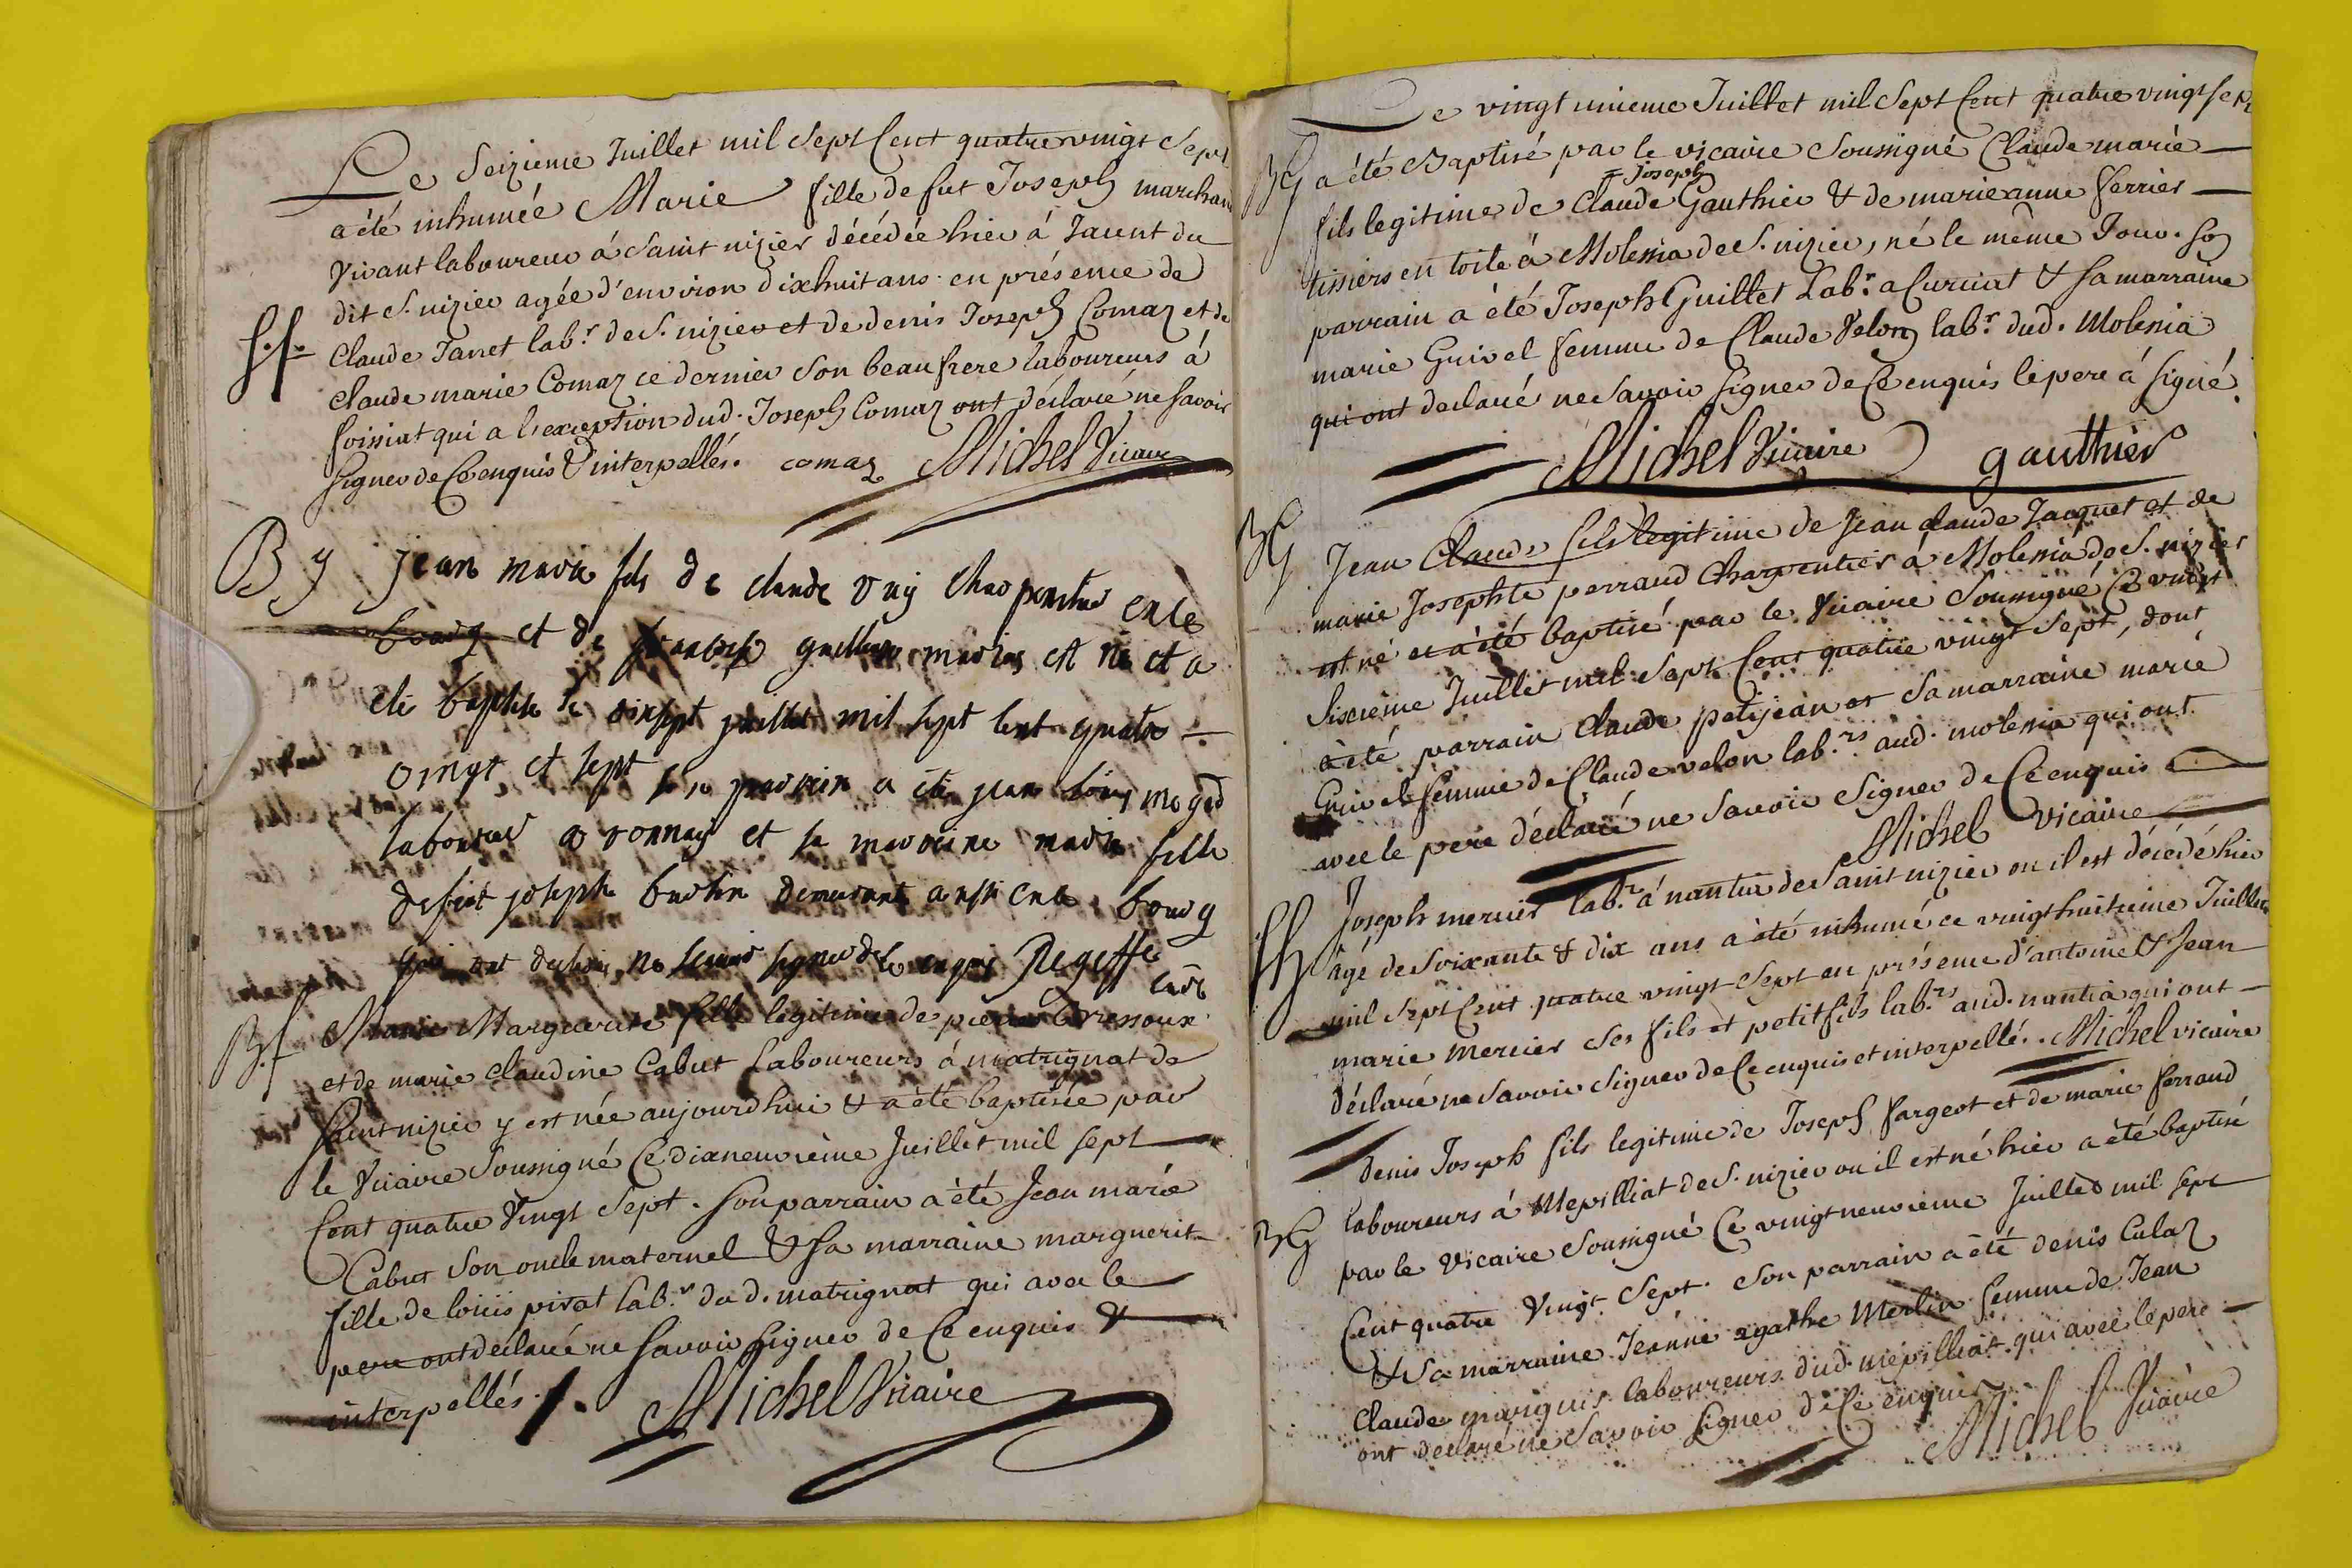 Le Seizieme Juillet mil Sept Cent quatre vingt Sept
a été inhumée Marie fille de fut Joseph marchand
Vivant laboureur á Saint nizier décédée hier á Tarent du
dit S. nizier agée d'environ dixhuit ans en présence de
S.f.
Claude Janet lab.r de S. nizier et de denis Joseph Comaz et de
Claude marie Comaz ce dernier Son beaufrere laboureurs à
foissiat qui a l'exception dud. Joseph Comaz ont déclaré ne Savoir
Signer de Ce enquis & interpellés. comaz Michel Vicaire
B g jean marie fils de claude vuy charpentier en ce
bourg et de guillon mariés est né et a
été baptisé le dixsept juillet mil sept cent quatre
vingt et sept son parrain a été jean louis
laboureur a et sa marraine marie fille
defunt joseph buchin demeurant aussi en ce bourg
qui ont declaré ne scavoir signer de ce enquis
curé
B.f Marie Marguerite fille legitime de pierre Bressoux
et de marie Claudine Cabut Laboureurs á matrignat de
Saint nizier y est née aujourdhui & a été baptisée par
le Vicaire Soussigné Ce dixneuvième Juillet mil sept
Cent quatre Vingt Sept. Son parrain a été Jean marie
Cabut Son oncle maternel & Sa marraine marguerite
fille de louis pivat lab.r du d. matrignat qui avec le
pere ont déclaré ne Savoir Signer de Ce enquis &
interpellés./. Michel Vicaire
Le vingt unieme Juillet mil Sept Cent quatre vingt sept
BG a été Baptisé par le vicaire Soussigné Claude marie
= Joseph
fils legitime de Claude Gauthier & de marieanne ferrier
tissiers en toile á Molesia de S. nizier, né le même Jour. Son
parrain a été Joseph Guillet Lab.r a Curciat & Sa marraine
marie Grivel femme de Claude Velon lab.r dud. Molesia
qui ont declaré ne Savoir Signer de Ce enquis le pere á Signé.
Michel Vicaire gauthier
BG Jean Claude fils legitime de Jean claude Jacquet et de
marie Josephte perraud Charpentier á Molesia de S. nizier
est né et a été baptisé par le Vicaire Soussigné Ce vingt
Sixième Juillet mil Sept Cent quatre vingt Sept, dont
a été parrain Claude petijean et Sa marraine marie
Grivel femme de Claude velon lab.rs aud. molesia qui ont
avec le pere déclaré ne Savoir Signer de Ce enquis
Michel vicaire
Joseph mercier lab.r á nantia de Saint nizier ou il est décédé hier
âgé de Soixante & dix ans a été inhumé ce vingthuitieme Juillet
mil Sept Cent quatre vingt Sept en présence d'antoine & Jean
marie mercier Ses fils et petit fils lab.rs aud. nantia qui ont
déclaré ne Savoir Signer de Ce enquis et interpellé.. Michel vicaire
denis Joseph fils legitime de Joseph fargeot et de marie ferraud
laboureurs á Mepilliat de S. nizier ou il est né hier a été baptisé
BG par le Vicaire Soussigné Ce vingtneuvieme Juillet mil Sept
Cent quatre Vingt Sept. Son parrain a été denis Calaz
& Sa marraine Jeanne agathe Merlin femme de Jean
Claude marquis laboureurs dud. mepilliat qui avec le pere
ont declaré ne Savoir Signer de Ce enquis Michel Vicaire